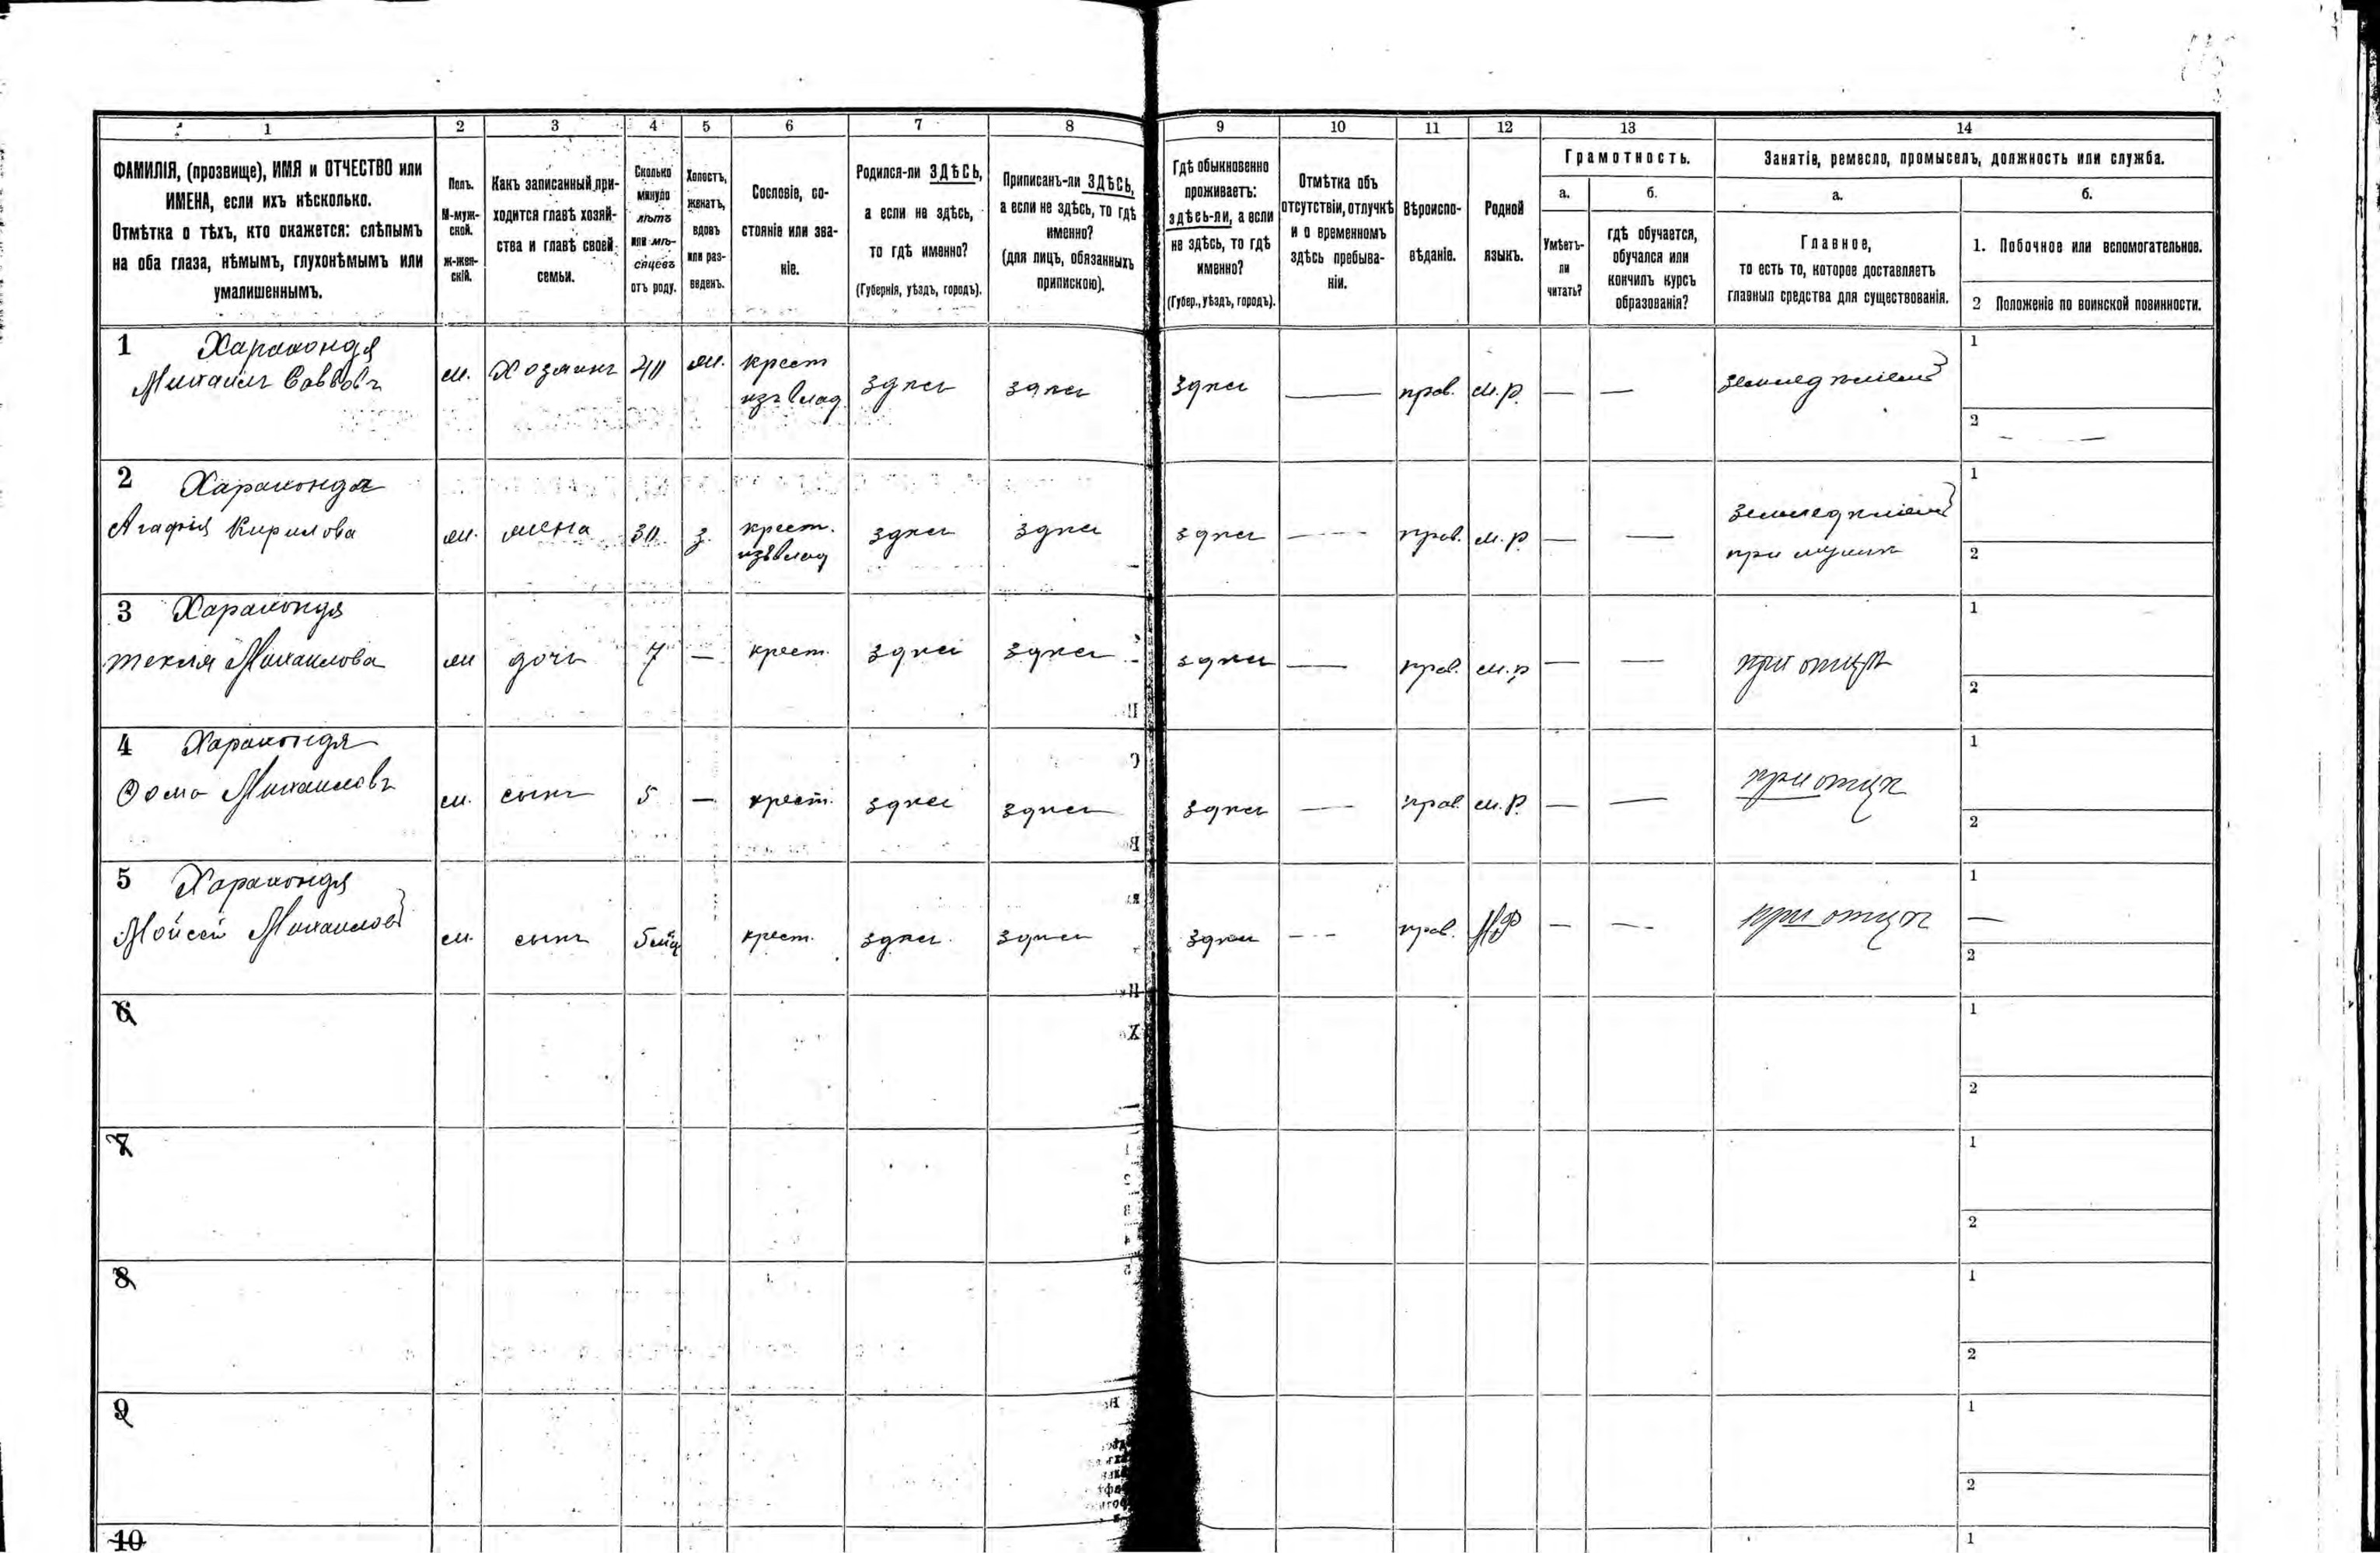 1 2 3 4 5 6 7 8 9 10 11 12 13 14
ФАМИЛІЯ, (прозвище), ИМЯ и ОТЧЕСТВО или
ИМЕНА, если ихъ нѣсколько.
Отмѣтка о тѣхъ, кто окажется: слѣпымъ
на оба глаза, нѣмымъ, глухонѣмымъ или
умалишеннымъ.
Полъ.
М-муж-
ской.
Ж-жен-
скій.
Какъ записанный при-
ходится главѣ хозяй-
ства и главѣ своей
семьи.
Сколько
минуло
лѣтъ
или мѣ-
сяцевъ
отъ роду.
Холостъ,
женатъ,
вдовъ
или раз-
веденъ.
Сословіе, со-
стояніе или зва-
ніе.
Родился-ли ЗДѢСЬ,
а если не здѣсь,
то гдѣ именно?
(Губернія, уѣздъ, городъ).
Приписанъ-ли ЗДѢСЬ,
а если не здѣсь, то гдѣ
именно?
(для лицъ, обязанныхъ
припискою).
Гдѣ обыкновенно
проживаетъ:
здѣсь-ли, а если
не здѣсь, то гдѣ
именно?
(Губер., уѣздъ, городъ).
Отмѣтка объ
отсутствіи, отлучкѣ
и о временномъ
здѣсь пребыва-
ніи.
Вѣроиспо-
вѣданіе.
Родной
языкъ.
Грамотность.
а.
Умѣетъ-
ли
читать?
б.
гдѣ обучается,
обучался или
кончилъ курсъ
образованія?
Занятіе, ремесло, промыселъ, должность или служба.
а.
Главное,
то есть то, которое доставляетъ
главныя средства для существованія.
б.
1. Побочное или вспомогательное.
2 Положеніе по воинской повинности.
1 Хараконда
Михаилъ Саввовъ
м. Хозяинъ 40 ж. крест
изъ влад здѣсь здѣсь здѣсь — прав. м.р. — — земледѣліемъ
1
2 — —
2 Хараконда
Агафія Кирилова
ж. жена 30 з. крест.
изъ влад здѣсь здѣсь здѣсь — прав. м.р. — — земледѣліемъ
при мужѣ
1
2
3 Хараконда
Текля Михаилова
ж дочь 7 — крест. здѣсь здѣсь здѣсь — прав. м.р — — при отцѣ
1
2
4 Хараконда
Фома Михаиловъ
м. сынъ 5 — крест. здѣсь здѣсь здѣсь — прав. м.р. — — при отцѣ
1
2
5 Хараконда
Мойсей Михаиловъ
м. сынъ 5 мѣц крест. здѣсь здѣсь здѣсь — прав. — — при отцѣ
1 —
2
6
1
2
7
1
2
8
1
2
9
1
2
10
1